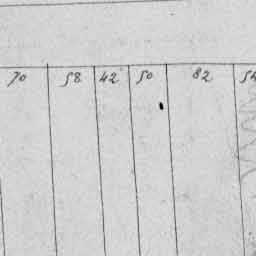 70 58 42 50 82